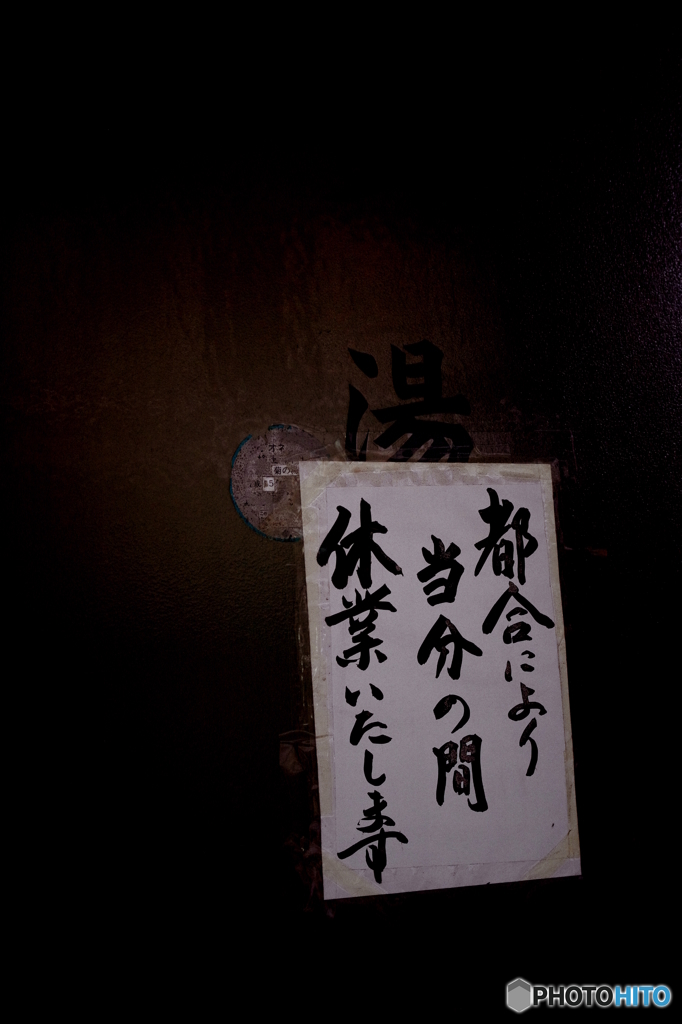 湯
都合により
当分の間
休業いたします
PHOTOHITO